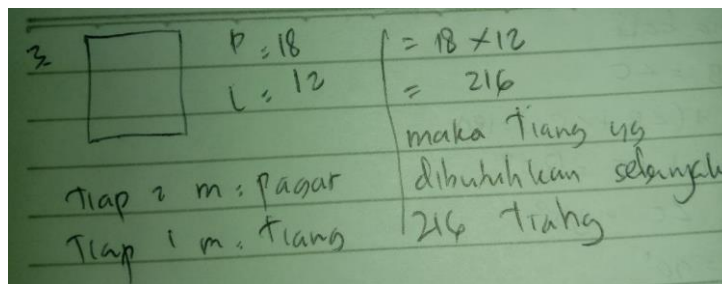 3.
P = 18
L = 12
Tiap 2 m = pagar
Tiap 1 m = tiang
= 18 x 12
= 216
maka tiang yg
dibutuhkan sebanyak
216 tiang